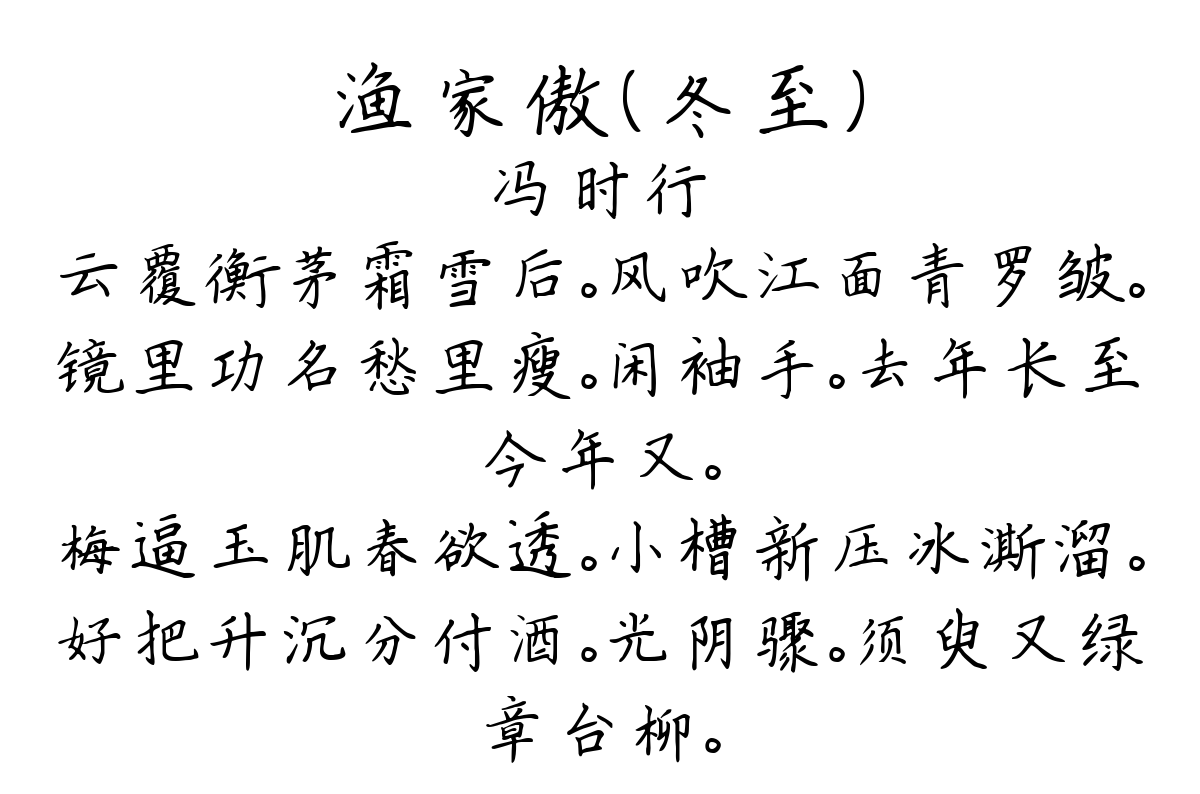 渔家傲(冬至)
冯时行
云覆衡茅霜雪后。风吹江面青罗皱。
镜里功名愁里瘦。闲袖手。去年长至
今年又。
梅逼玉肌春欲透。小槽新压冰澌溜。
好把升沉分付酒。光阴骤。须臾又绿
章台柳。